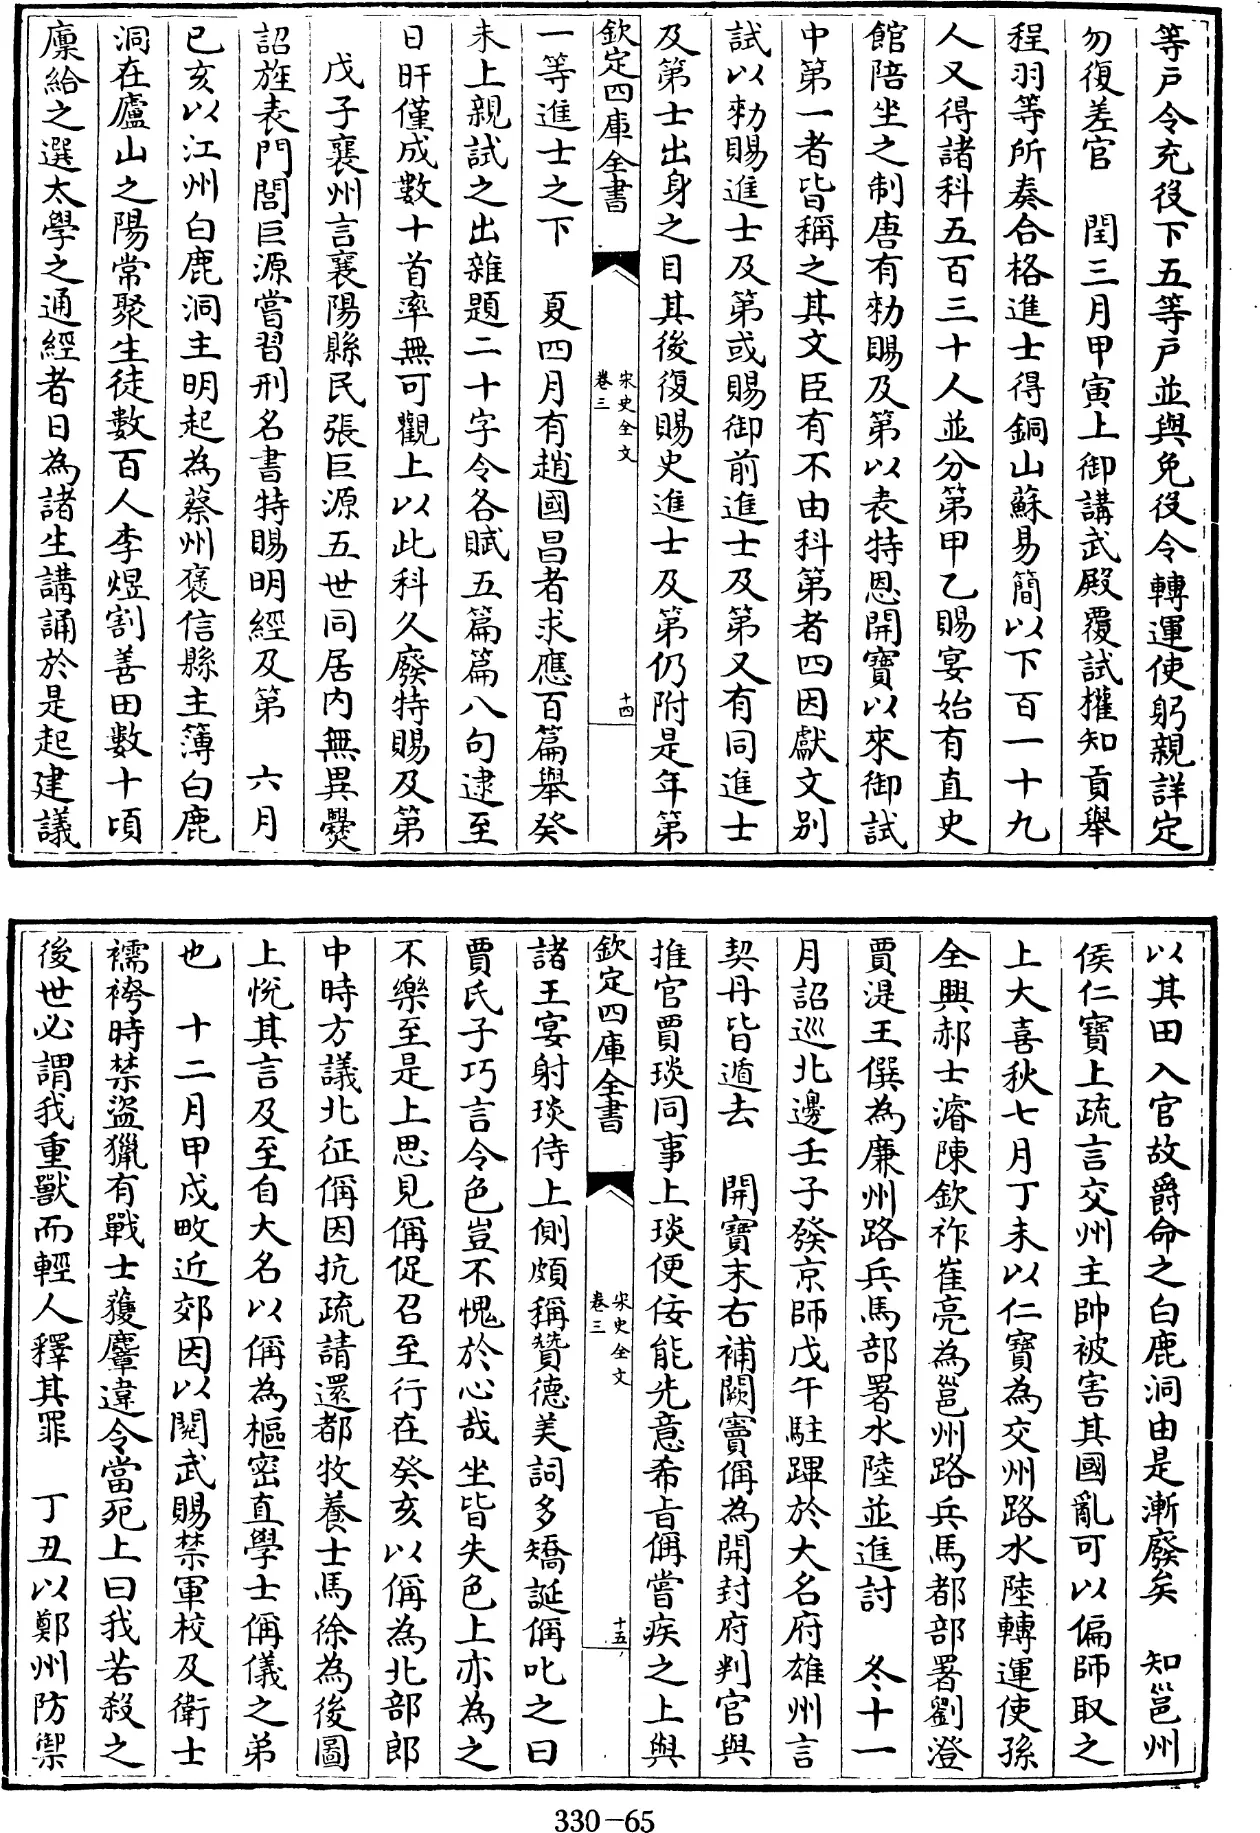 等戸令充役下五等戸並與免役令轉運使躬親詳定
勿復差官　閏三月甲寅上御講武殿覆試權知貢舉
程羽等所奏合格進士得銅山蘇易簡以下百一十九
人又得諸科五百三十人並分第甲乙賜宴始有直史
館陪坐之制唐有勅賜及第以表特恩開寶以來御試
中第一者皆稱之其文臣有不由科第者四因獻文別
試以勅賜進士及第或賜御前進士及第又有同進士
及第士出身之目其後復賜史進士及第仍附是年第
欽定四庫全書
宋史全文
卷三
十四
一等進士之下　夏四月有趙國昌者求應百篇舉癸
未上親試之出雜題二十字令各賦五篇篇八句逮至
日旰僅成數十首率無可觀上以此科久廢特賜及第
戊子襄州言襄陽縣民張巨源五世同居内無異爨
詔旌表門閭巨源嘗習刑名書特賜明經及第　六月
已亥以江州白鹿洞主明起為蔡州褒信縣主簿白鹿
洞在廬山之陽常聚生徒數百人李煜割善田數十頃
廪給之選太學之通經者日為諸生講誦於是起建議
以其田入官故爵命之白鹿洞由是漸廢矣　知邕州
侯仁寶上疏言交州主帥被害其國亂可以偏師取之
上大喜秋七月丁未以仁寶為交州路水陸轉運使孫
全興郝士濬陳欽祚崔亮為邕州路兵馬都部署劉澄
賈湜王僎為廉州路兵馬部署水陸並進討　冬十一
月詔巡北邊壬子發京師戊午駐蹕於大名府雄州言
契丹皆遁去　開寶末右補闕竇偁為開封府判官與
推官賈琰同事上琰便佞能先意希旨偁嘗疾之上與
欽定四庫全書
宋史全文
卷三
十五
諸王宴射琰侍上側頗稱贊德美詞多矯誕偁叱之曰
賈氏子巧言令色豈不愧於心哉坐皆失色上亦為之
不樂至是上思見偁促召至行在癸亥以偁為北部郎
中時方議北征偁因抗疏請還都牧養士馬徐為後圖
上悅其言及至自大名以偁為樞密直學士偁儀之弟
也　十二月甲戍畋近郊因以閱武賜禁軍校及衛士
襦袴時禁盜獵有戰士獲麞違令當死上曰我若殺之
後世必謂我重獸而輕人釋其罪　丁丑以鄭州防禦
330-65